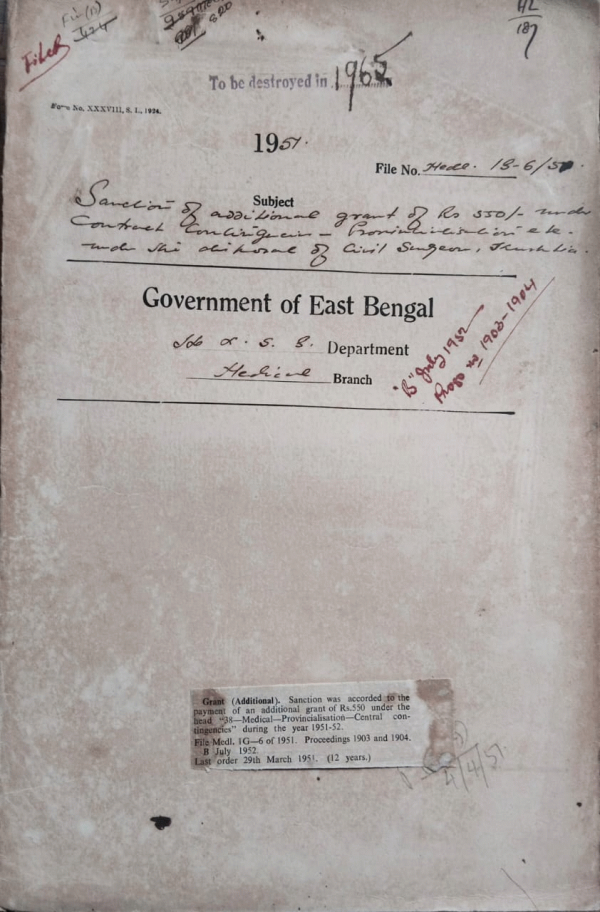 File B
To be destroyed in 1965
Form No. XXXVIII, S. I., 1934.
1951.
File No. Medl. 1G-6/51
Subject
Sanction of additional grant of Rs 550/- under
Contract Contingencies - Provincialisation etc.
under the disposal of Civil Surgeon, Kushtia.
Government of East Bengal
S. G. Department
Medical Branch
"B" July 1952
Progs nos 1903-1904
Grant (Additional). Sanction was accorded to the
payment of an additional grant of Rs.550 under the
head "38—Medical—Provincialisation—Central con-
tingencies" during the year 1951-52.
File Medl. 1G—6 of 1951. Proceedings 1903 and 1904.
B July 1952.
Last order 29th March 1951. (12 years.)
4/4/51.